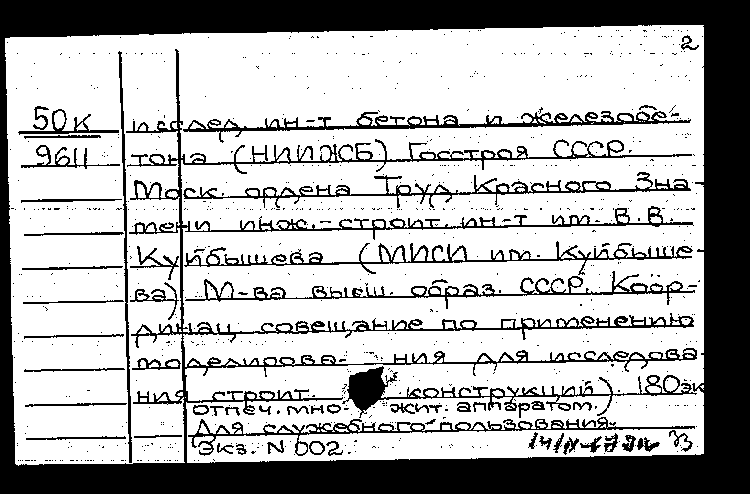 2
50к
9611
исслед. ин-т бетона и железобе-
тона (НИИЖБ) Госстроя СССР.
Моск. ордена Труд. Красного Зна-
мени инж.-строит. ин-т им. В.В.
Куйбышева (МИСИ им. Куйбыше-
ва) М-ва высш. образ. СССР. Коор-
динац. совещание по применению
моделирова- ния для исследова-
ния строит. конструкций). 180 эк
отпеч. мно- жит. аппаратом.)
Для служебного пользования.
Экз. N 002.